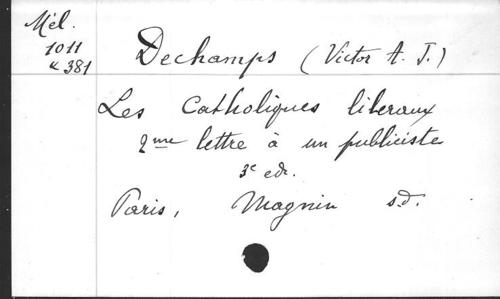 Mél.
1011
< 381
Dechamps (Victor A. J.)
Les Catholiques liberaux
2me lettre à un publiciste
3e ed.
Paris, Magnin s.d.